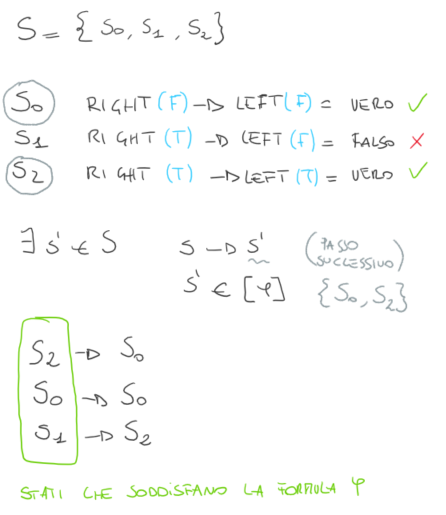 S = { S0, S1, S2 }
S0 RIGHT (F) → LEFT (F) = VERO ✓
S1 RIGHT (T) → LEFT (F) = FALSO ✗
S2 RIGHT (T) → LEFT (T) = VERO ✓
∃ s' ∈ S s → s' (PASSO SUCCESSIVO)
s' ∈ [φ] {S0, S2}
S2 → S0
S0 → S0
S1 → S2
STATI CHE SODDISFANO LA FORMULA φ